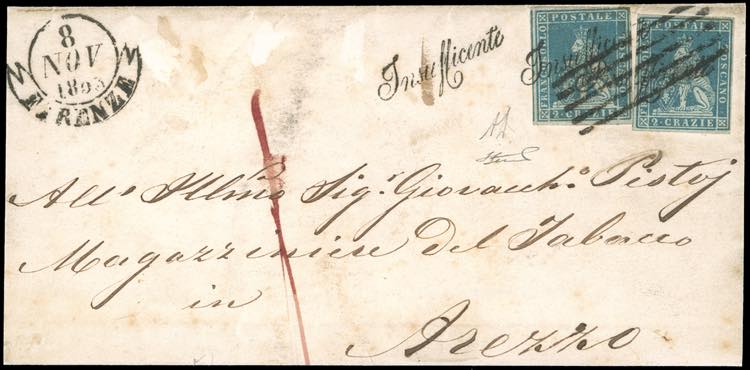 8
NOV
1855
FIRENZE
Insufficente
Insufficente
FRANCOBOLLO POSTALE TOSCANO
2 CRAZIE
POSTALE TOSCANO
2 CRAZIE
All. Illmo Sig.r Giovacch.o Pistoj
Magazziniere del Tabacco
in
Arezzo